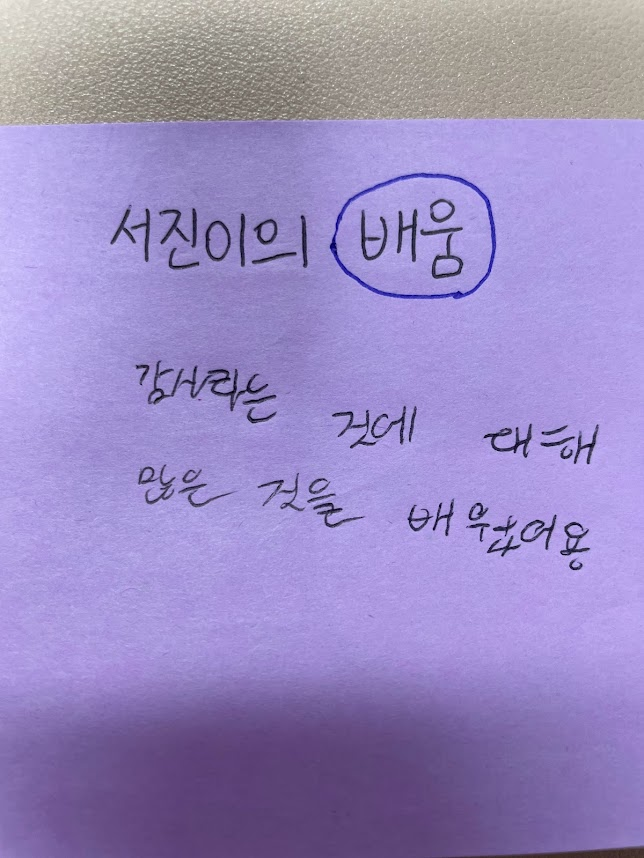 서진이의 배움
감사라는 것에 대해
많은 것을 배웠어용